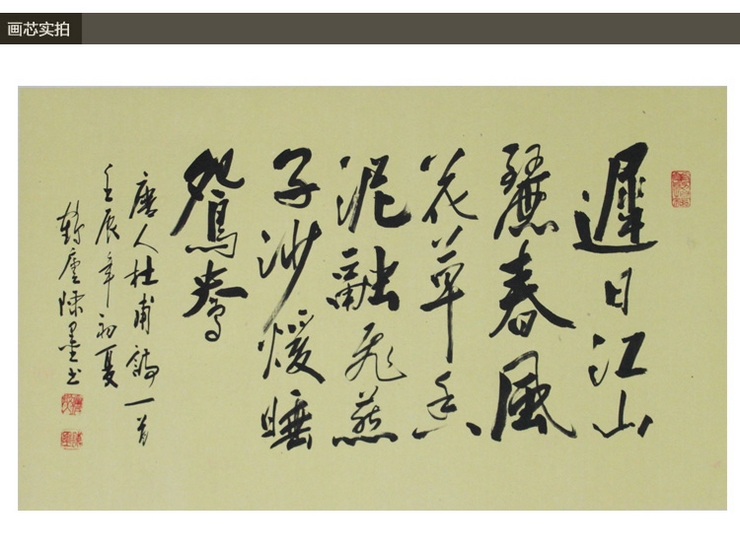 画芯实拍
遲日江山
麗春風
花草香
泥融飛燕
子沙煖睡
鴛鴦
唐人杜甫詩一首
壬辰年初夏
陈墨书